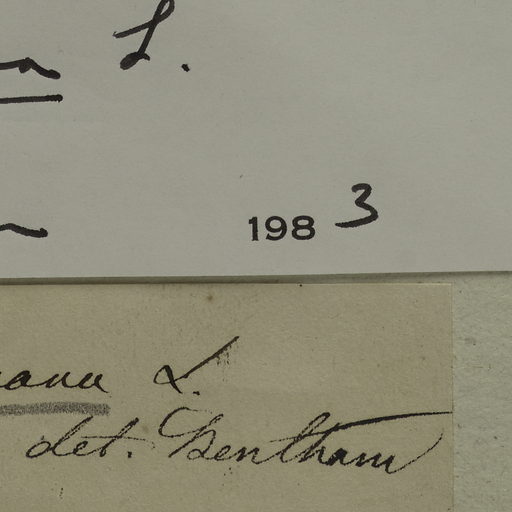 L.
1983
L.
det. Bentham